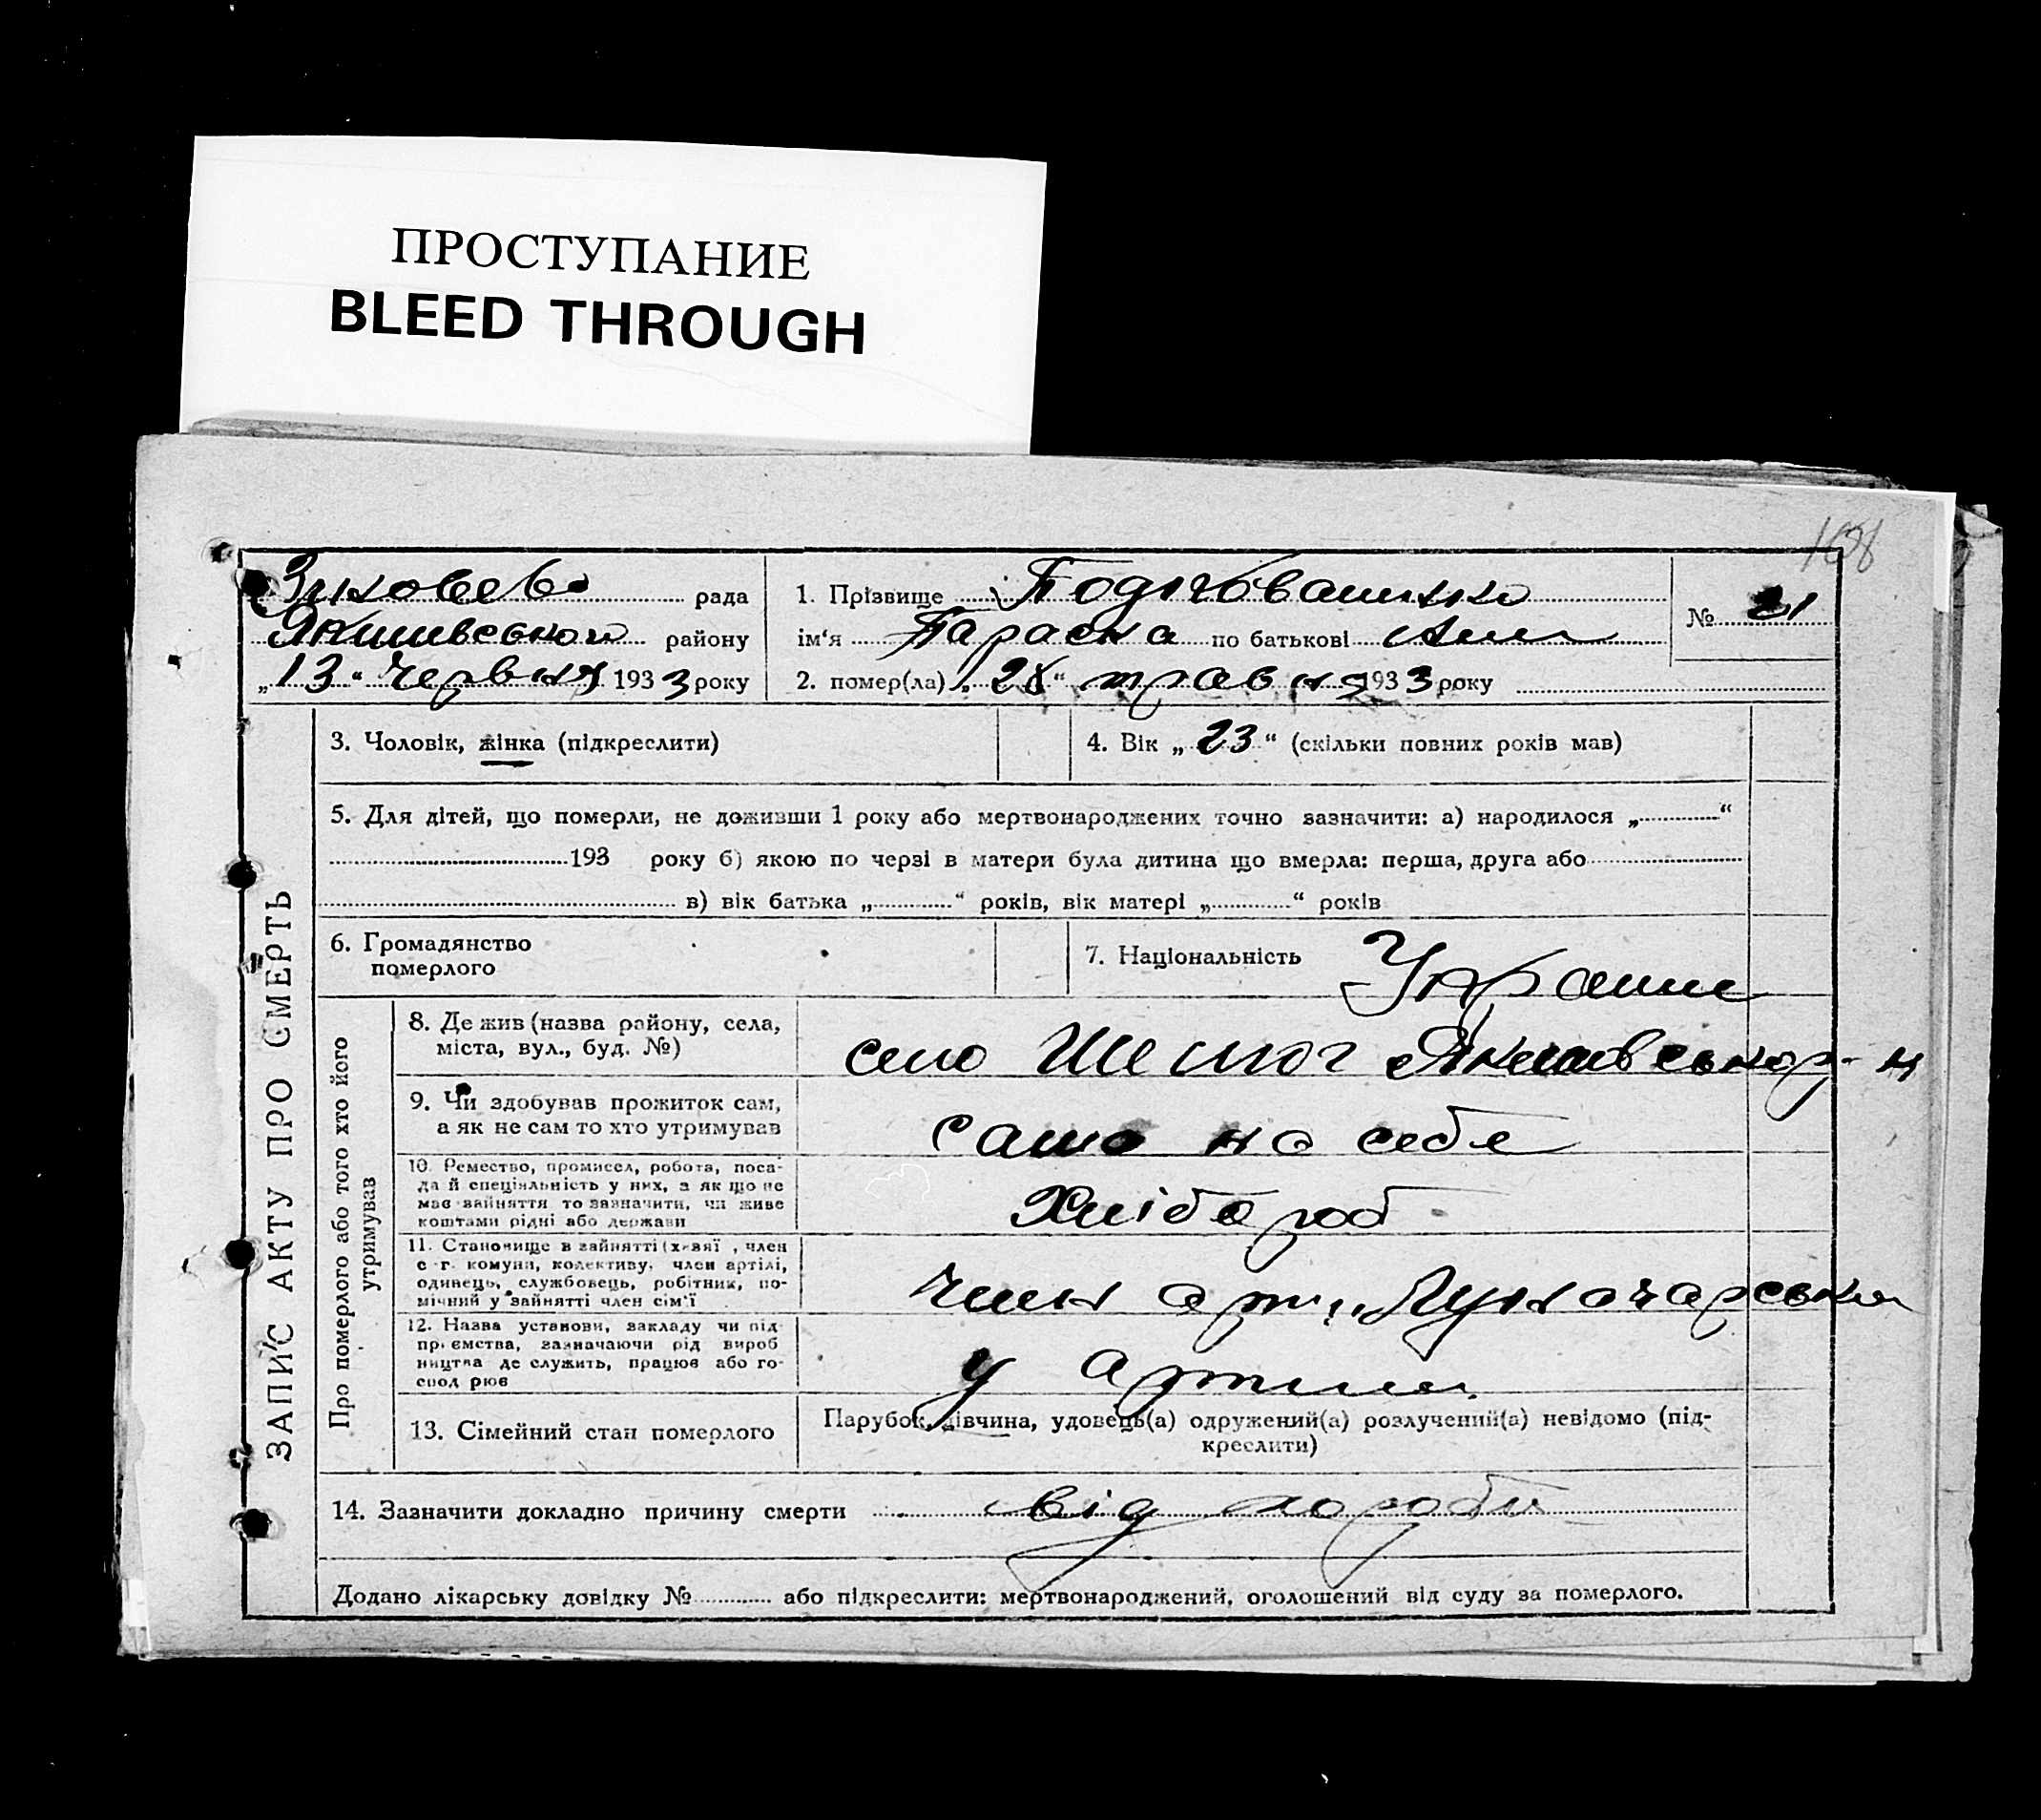 ПРОСТУПАНИЕ
BLEED THROUGH
168
рада
району
„13“ Червня 1933 року
1. Прізвище
ім‘я Параска по батькові
2. помер(ла) „28“ травня 1933 року
№ 21
ЗАПИС АКТУ ПРО СМЕРТЬ
3. Чоловік, жінка (підкреслити)
4. Вік „23“ (скільки повних років мав)
5. Для дітей, що померли, не доживши 1 року або мертвонароджених точно зазначити: а) народилося „ “
193 року б) якою по черзі в матери була дитина що вмерла: перша, друга або
в) вік батька „ “ років, вік матері „ “ років
6. Громадянство
померлого
7. Національність Украин
Про померлого або того хто його
утримував
8. Де жив (назва району, села,
міста, вул., буд. №)
село
9. Чи здобував прожиток сам,
а як не сам то хто утримував
само на себе
10. Ремество, промисел, робота, поса-
да й спеціяльність у них, а як що не
має зайняття то зазначити, чи живе
коштами рідні або держави
Хлібороб
11. Становище в зайнятті (х-звяї , член
с-г. комуни, колективу, член артілі,
одинець, службовець, робітник, по-
мічний у зайнятті член сім‘ї
член арт. Луначарська
12. Назва установи, закладу чи під
приємства, зазначаючи рід вироб
ництва де служить, працює або го-
спод рює
у артили
13. Сімейний стан померлого
Парубок, дівчина, удовець(а) одружений(а) розлучений(а) невідомо (під-
креслити)
14. Зазначити докладно причину смерти від
Додано лікарську довідку № або підкреслити: мертвонароджений, оголошений від суду за померлого.